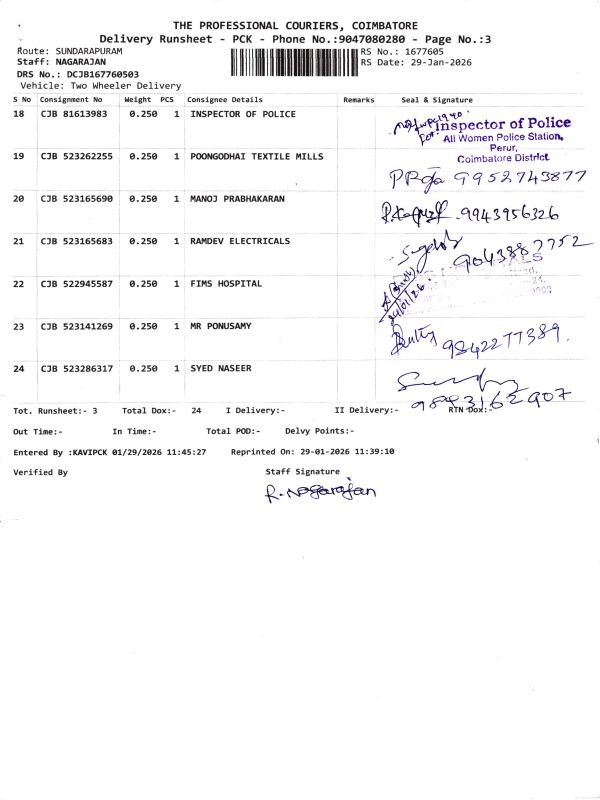 THE PROFESSIONAL COURIERS, COIMBATORE
Delivery Runsheet - PCK - Phone No.:9047080280 - Page No.:3
Route: SUNDARAPURAM RS No.: 1677605
Staff: NAGARAJAN RS Date: 29-Jan-2026
DRS No.: DCJB167760503
Vehicle: Two Wheeler Delivery
S No Consignment No Weight PCS Consignee Details Remarks Seal & Signature
18 CJB 81613983 0.250 1 INSPECTOR OF POLICE
Inspector of Police
All Women Police Station,
Perur,
Coimbatore District.
19 CJB 523262255 0.250 1 POONGODHAI TEXTILE MILLS
9952743877
20 CJB 523165690 0.250 1 MANOJ PRABHAKARAN
9943956326
21 CJB 523165683 0.250 1 RAMDEV ELECTRICALS
9043887752
22 CJB 522945587 0.250 1 FIMS HOSPITAL
23 CJB 523141269 0.250 1 MR PONUSAMY
9842277389.
24 CJB 523286317 0.250 1 SYED NASEER
98943162907
Tot. Runsheet:- 3 Total Dox:- 24 I Delivery:- II Delivery:- RTN Dox:-
Out Time:- In Time:- Total POD:- Delvy Points:-
Entered By :KAVIPCK 01/29/2026 11:45:27 Reprinted On: 29-01-2026 11:39:10
Verified By Staff Signature
R. Nagarajan